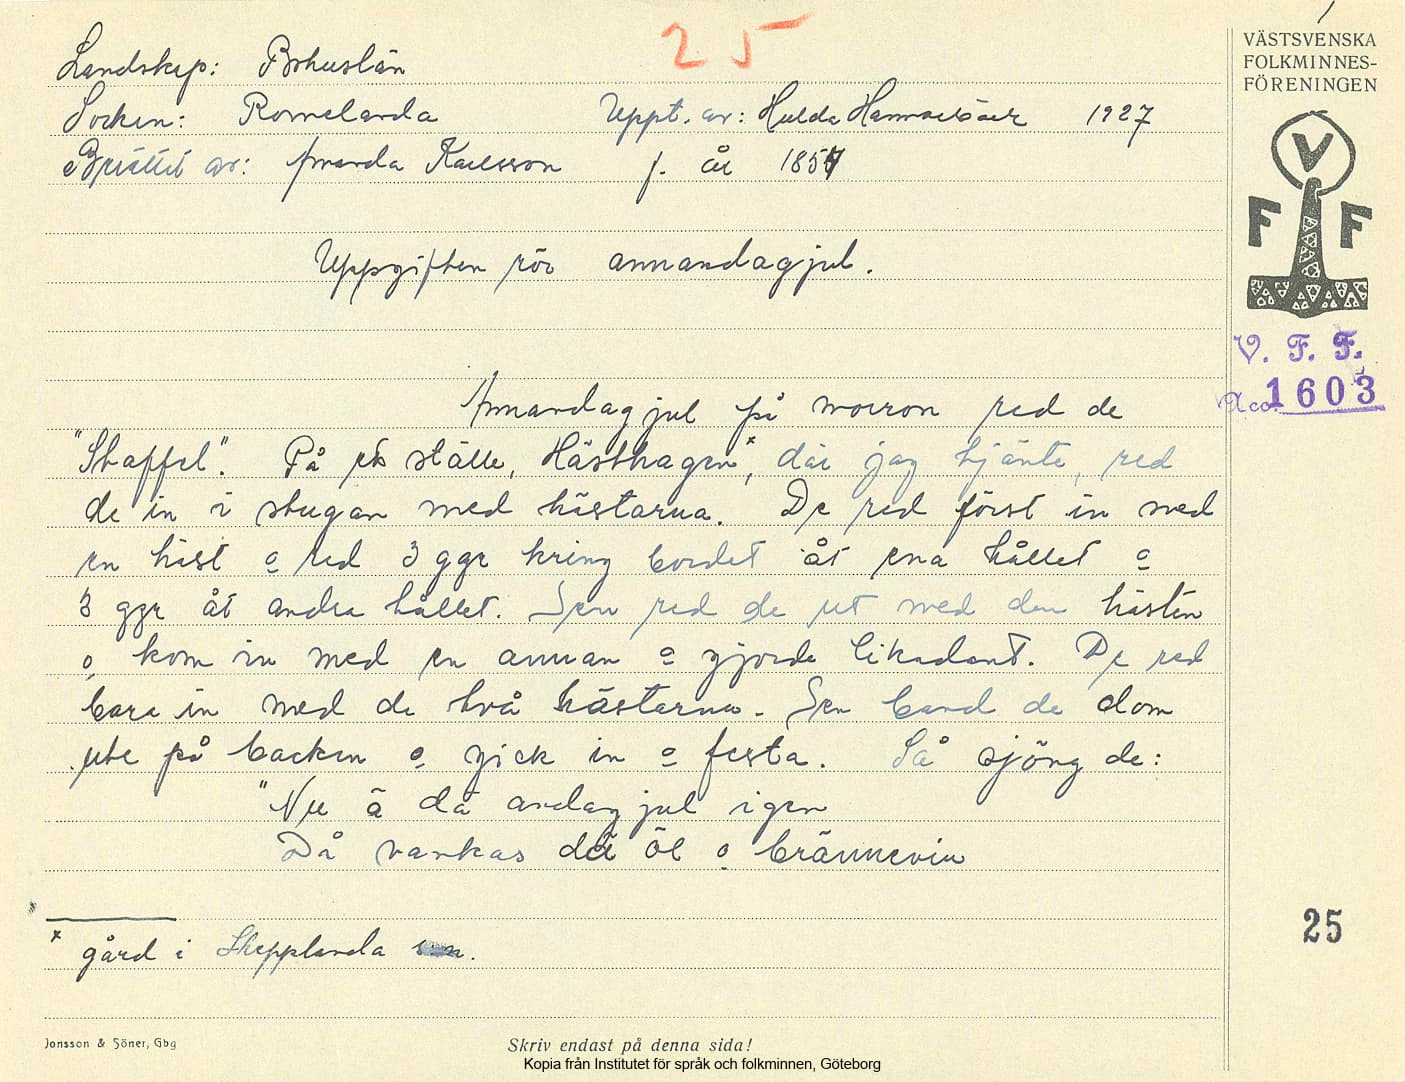 25
Landskap: Bohuslän
Socken: Romelanda Uppt. av: Hulda Hammarbäck 1927
Berättat av: Amanda Karlsson f. år 1857
Uppgiften rör annandagjul.
Annandagjul på morron red de
"Staffel". På ett ställe, Hästhagen*, där jag tjänte, red
de in i stugan med hästarna. De red först in med
en häst o red 3 ggr kring bordet åt ena hållet o
3 ggr åt andra hållet. Sen red de ut med den hästen
o kom in med en annan o gjorde likadant. De red
bara in med de två hästarna. Sen band de dom
ute på backen o gick in o festa. Så sjöng de:
"Nu ä dä andagjul igen
Då vankas dä öl o brännevin
* gård i Skepplanda s:n.
Jonsson & Söner, Gbg
Skriv endast på denna sida!
Kopia från Institutet för språk och folkminnen, Göteborg
VÄSTSVENSKA
FOLKMINNES-
FÖRENINGEN
V
F F
V. F. F.
Acc. 1603
25